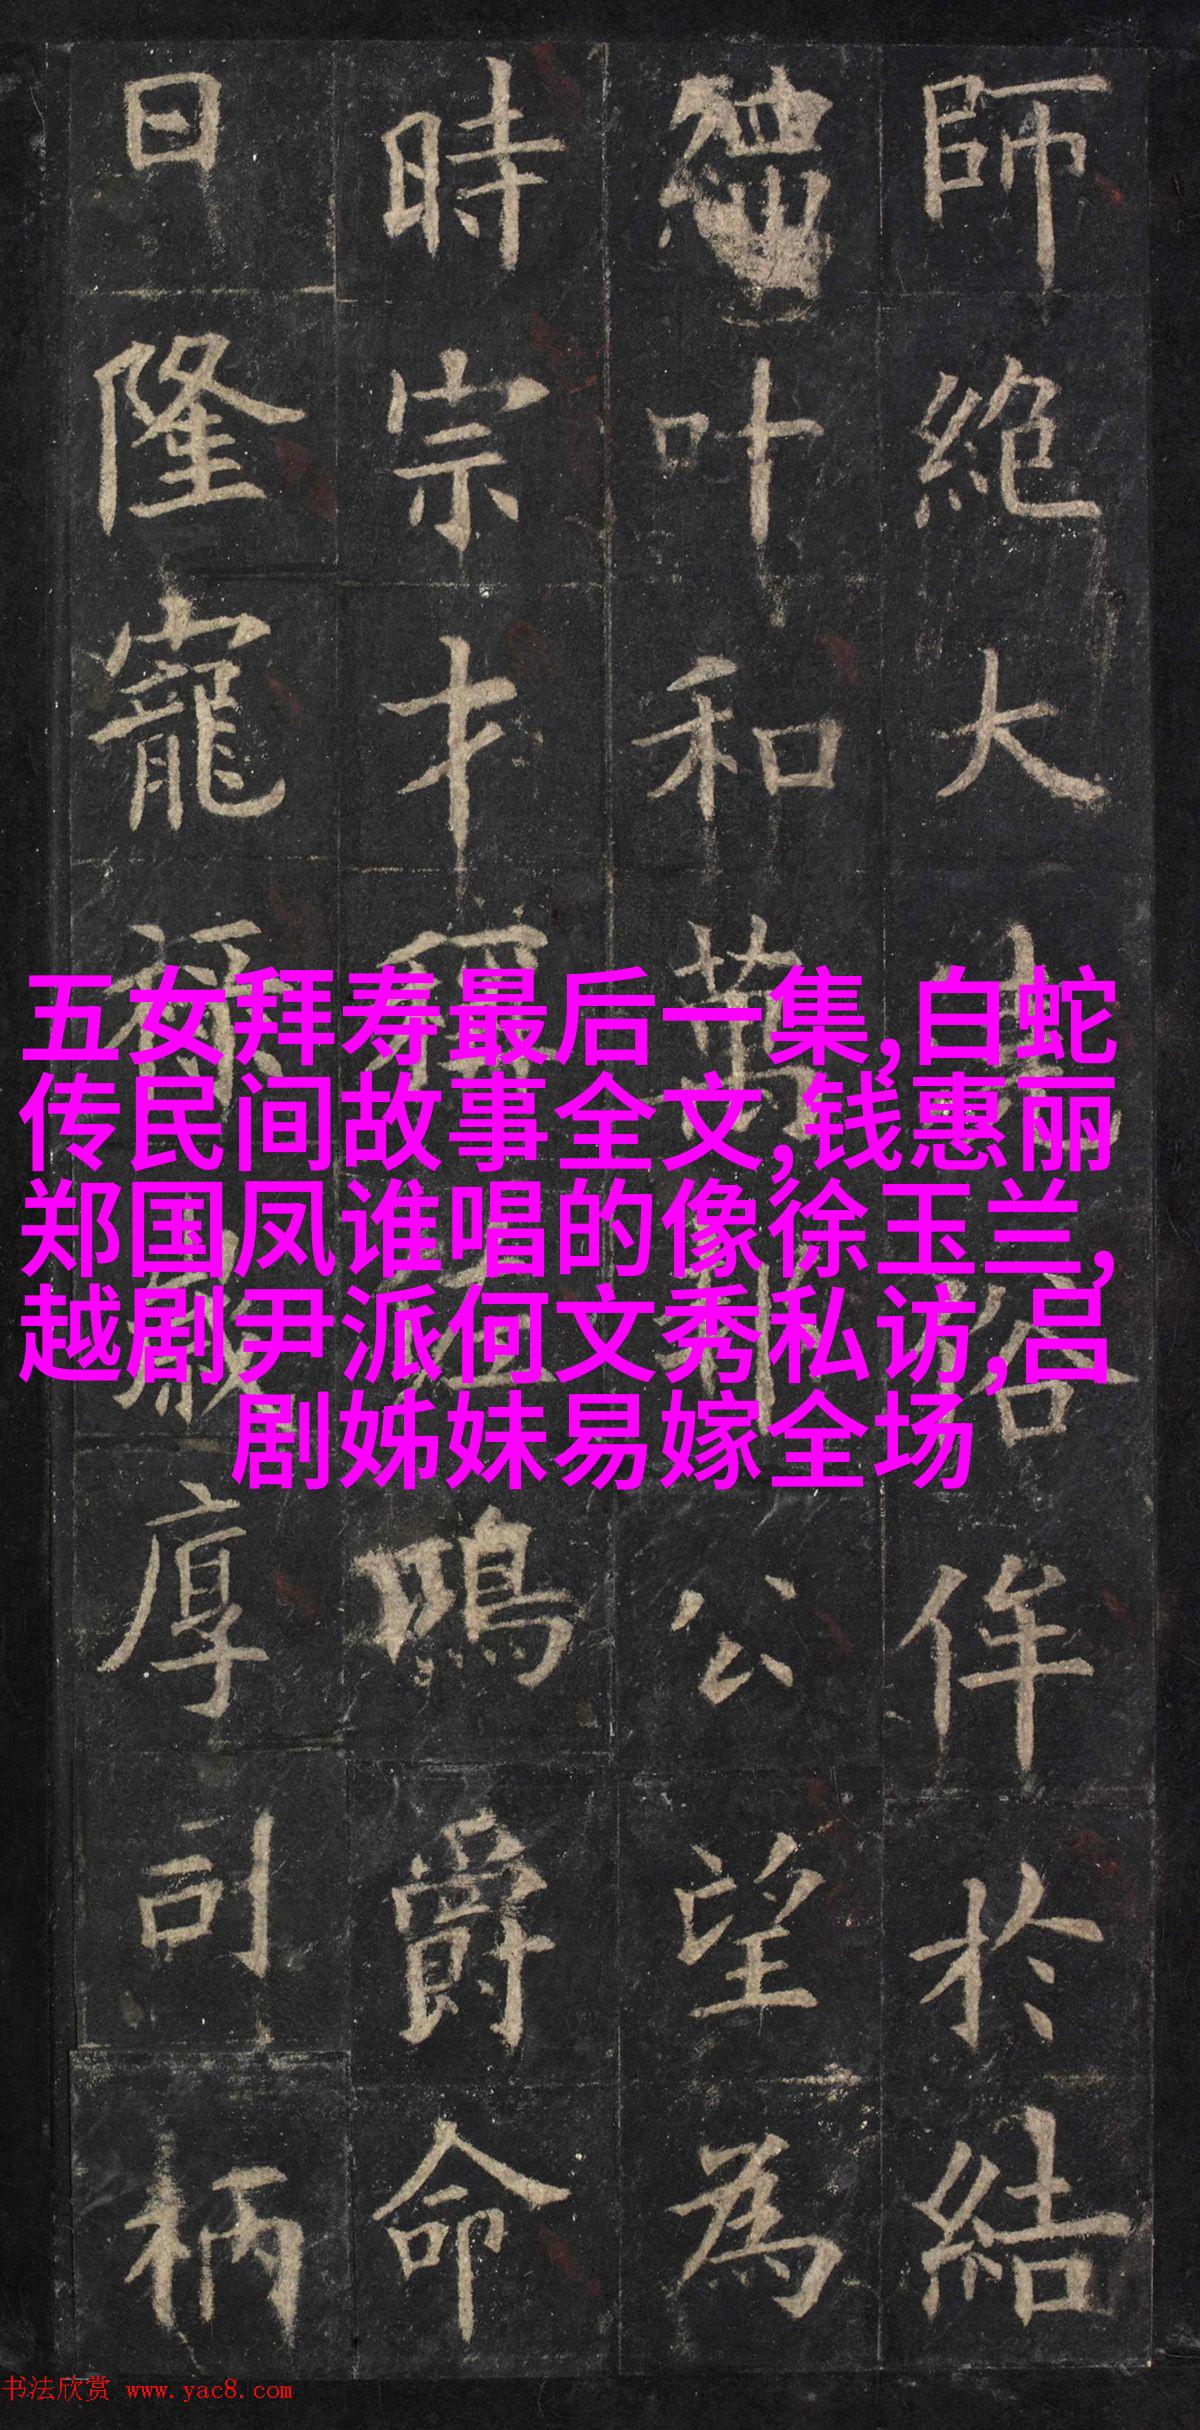 師絶大侔於結
叶和萬公望為
時宗才鳴爵命
日隆寵厚司柄
五女拜寿最后一集,白蛇
传民间故事全文,钱惠丽
郑国凤谁唱的像徐玉兰,
越剧尹派何文秀私访,吕
剧姊妹易嫁全场
书法欣赏 www.yac8.com